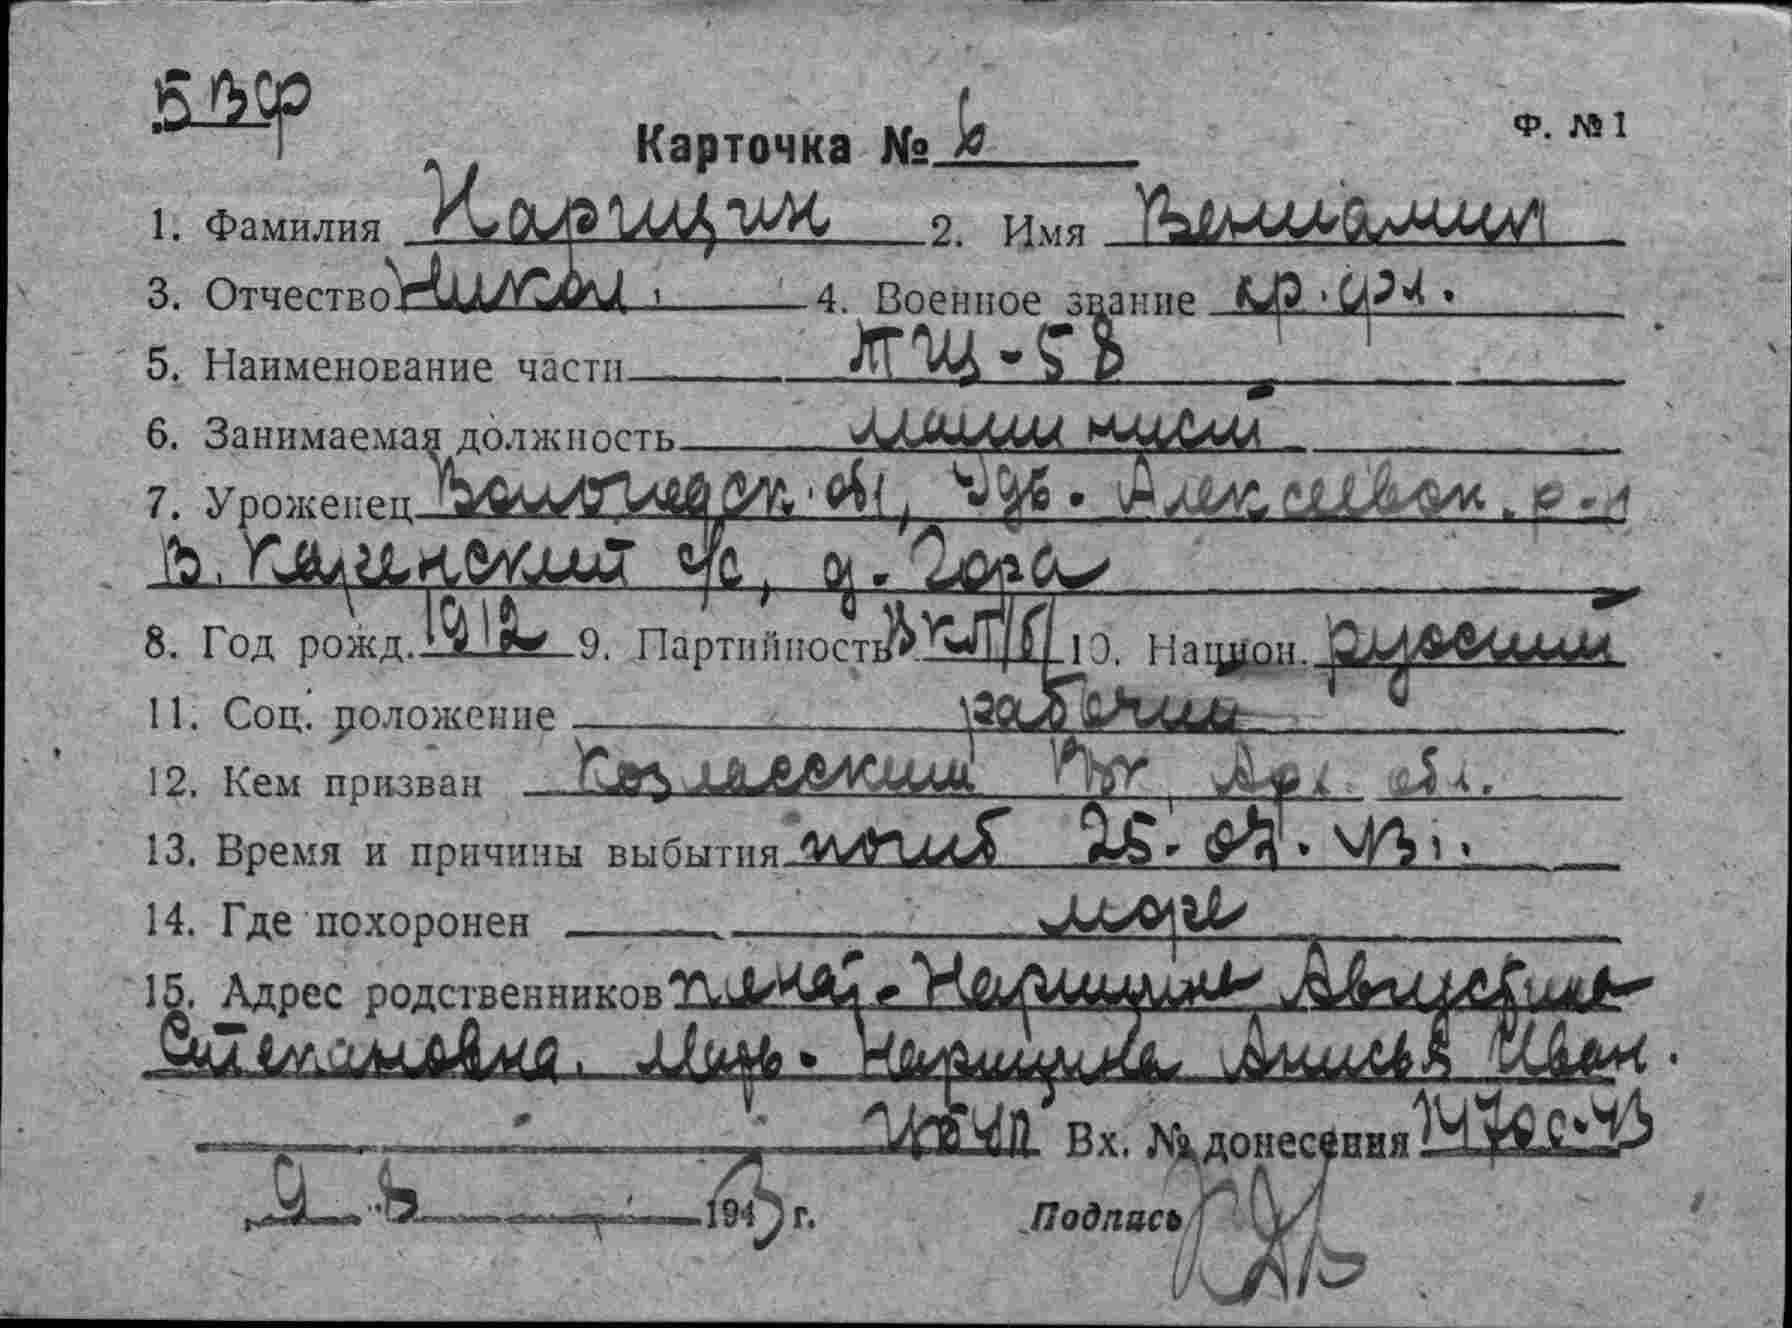 БВФ
Ф. №1
Карточка № 6
1. Фамилия Нарицин 2. Имя Вениамин
3. Отчество Никол. 4. Военное звание кр. фл.
5. Наименование части ТЩ-58
6. Занимаемая должность машинист
7. Уроженец Вологодск. обл, Алексеевск. р-н
В. Каченский с/с, д. Гора
8. Год рожд. 1912 9. Партийность ВКП/б/ 10. Национ. русский
11. Соц. положение рабочий
12. Кем призван РВК, Арх. обл.
13. Время и причины выбытия погиб 25.07.43 г.
14. Где похоронен море
15. Адрес родственников жена - Нарицина Августина
Степановна. Мать - Нарицина Анисья Иван.
Вх. № донесения 1470с-43
9. 8 1943 г. Подпись